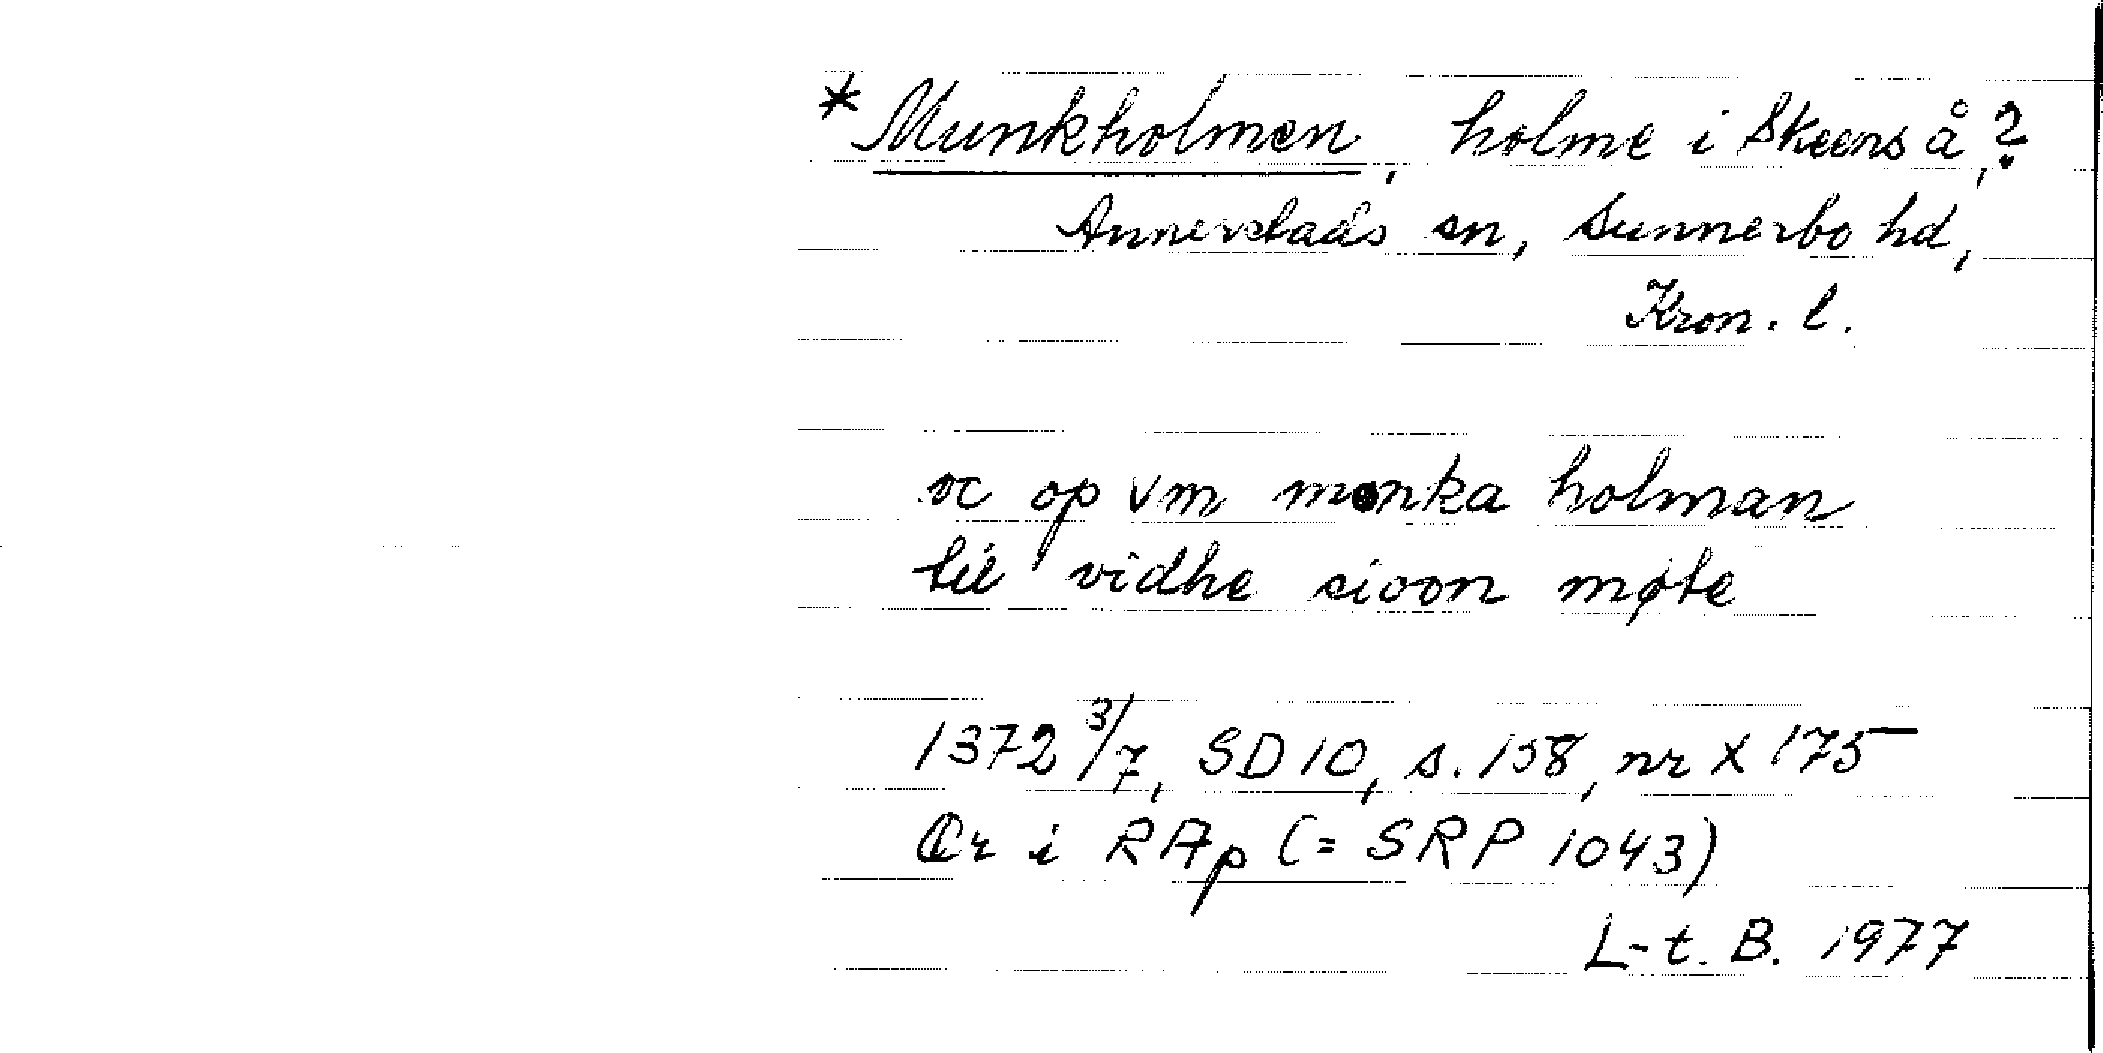 * Munkholmen, holme i Skeens å?,
Annerstads sn, Sunnerbo hd,
Kron. l.
oc op vm monka holman
til vidhe sioon møte
1372 3/7, SD 10, s. 158, nr X 175
Or i RAp (= SRP 1043)
L-t. B. 1977